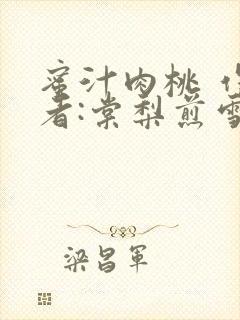 蜜汁肉桃 作
者:棠梨煎雪
梁昌军